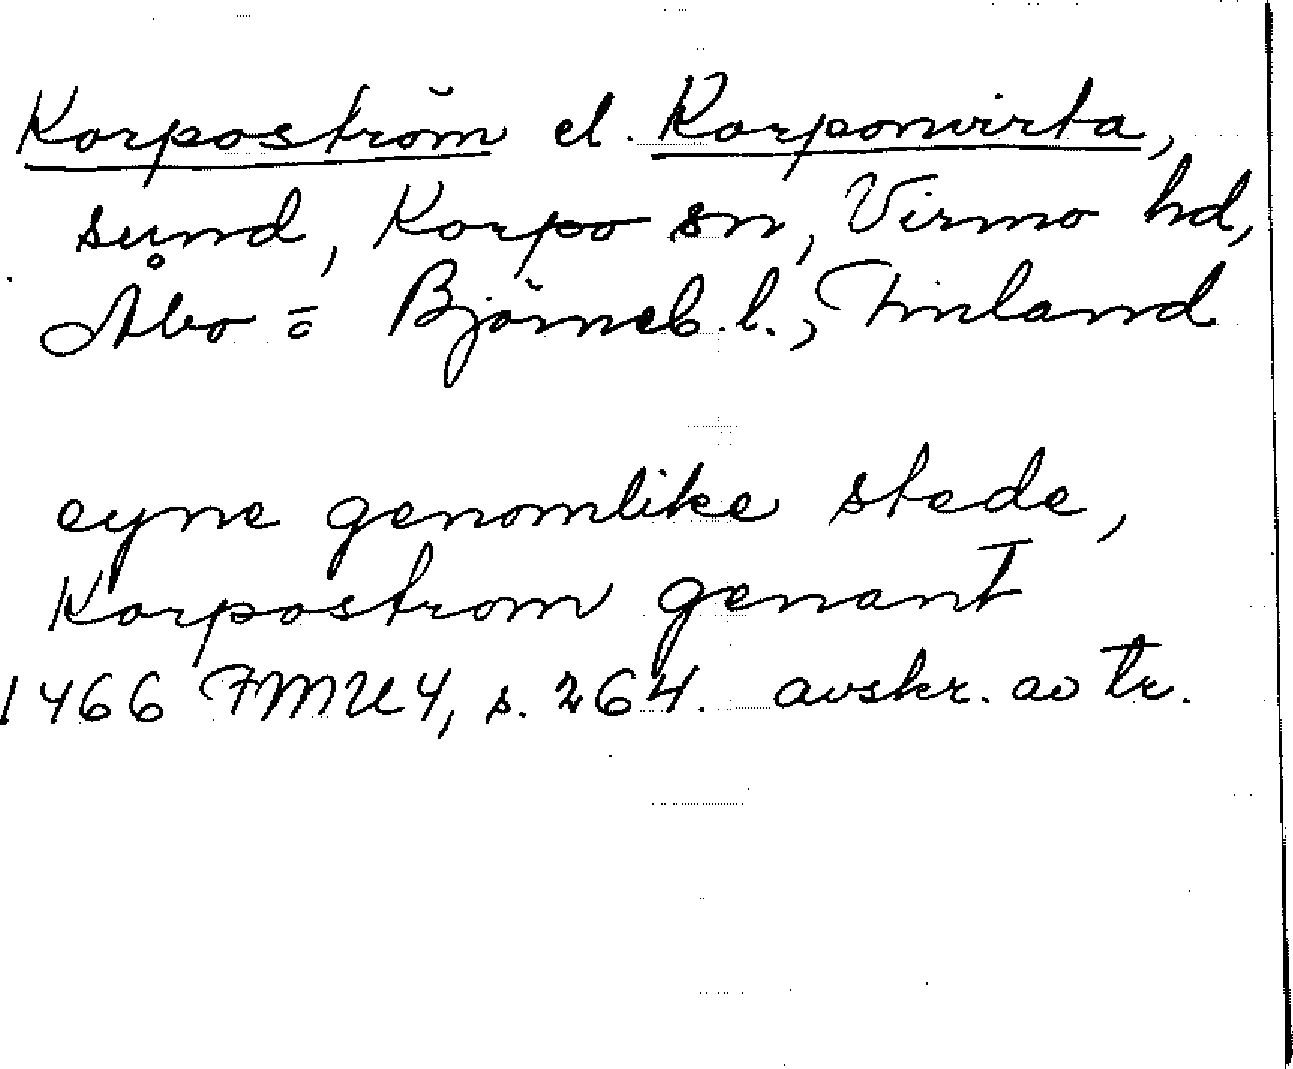 Korpoström el. Korponvirta,
sund, Korpo sn, Virmo hd,
Åbo = Björneb. l., Finland
eyne genomlike stede,
Korpostrom genant
1466 FMU 4, s. 264. avskr. av Tr.